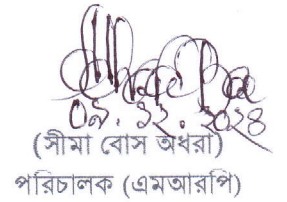 ০৯.১২.২০২৪
(সীমা বোস অধরা)
পরিচালক (এমআরপি)